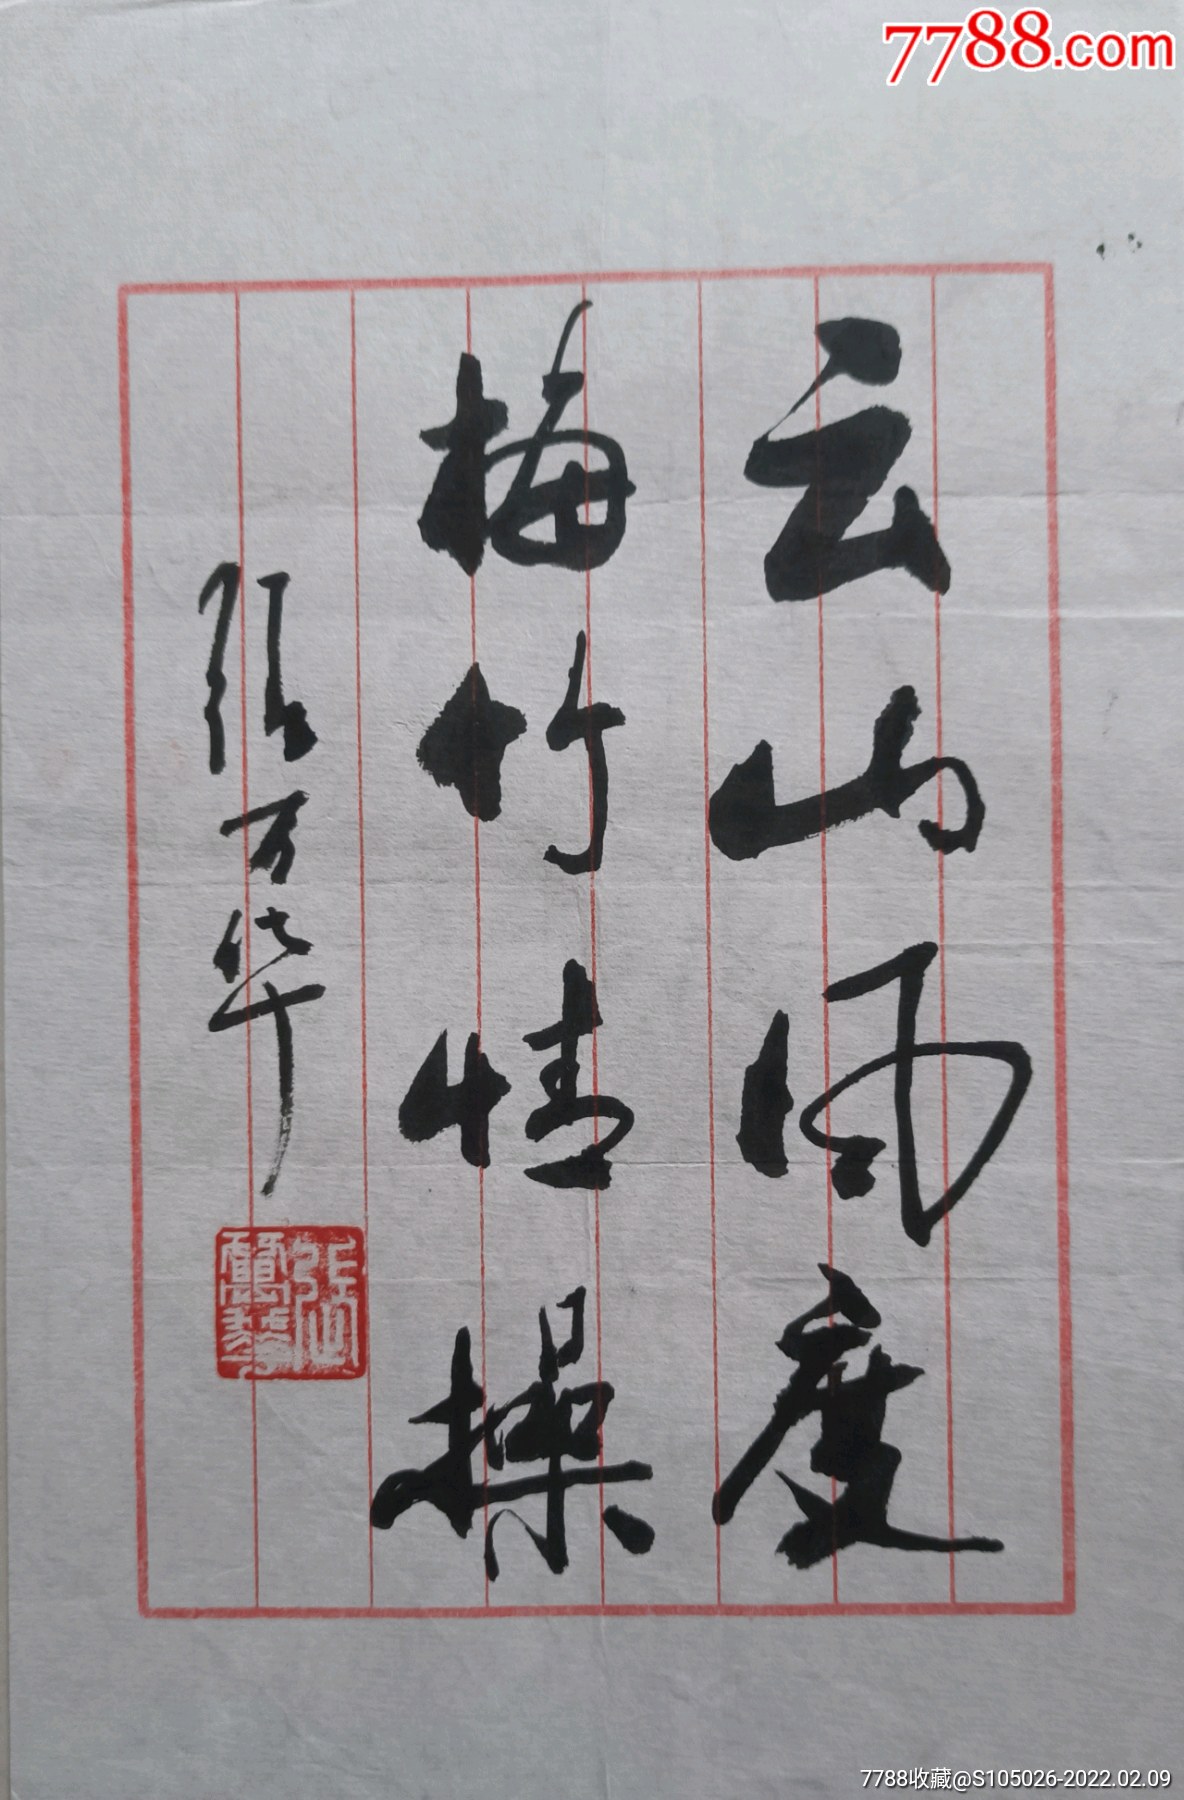 7788.com
云山风度
梅竹情操
张万华
张万华
7788收藏@S105026-2022.02.09